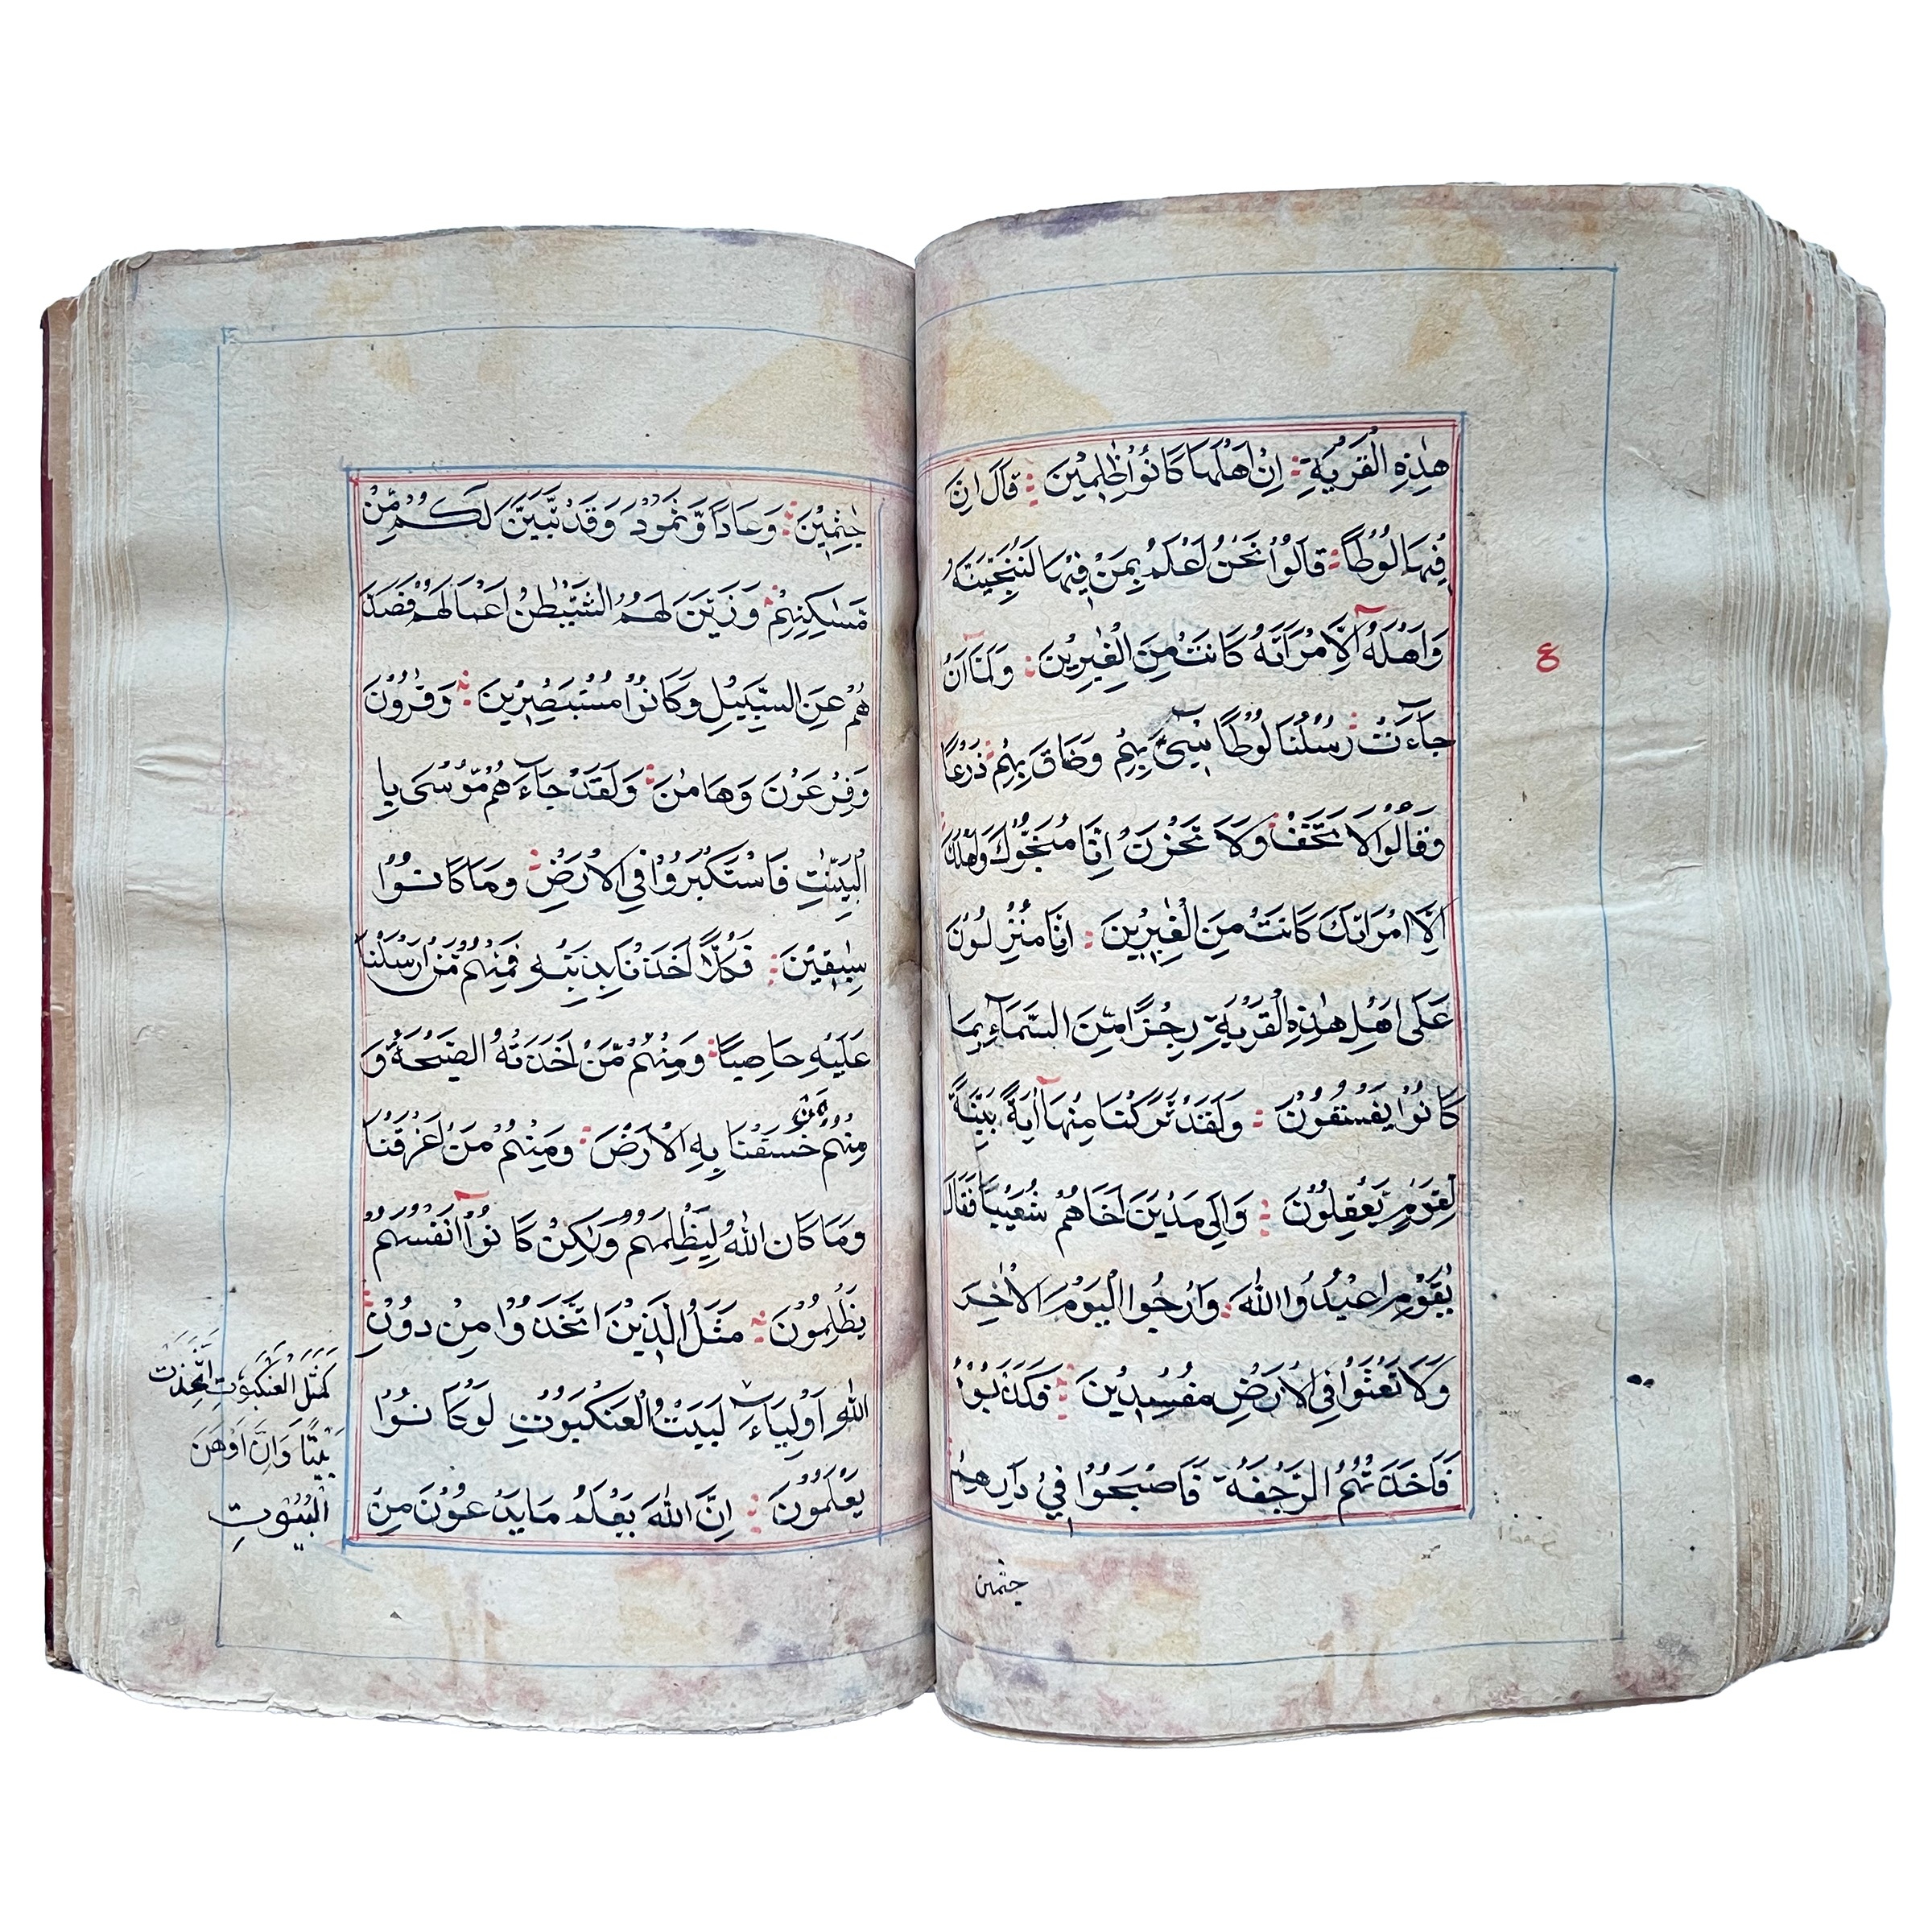 هٰذِهِ الْقَرْيَةِ اِنَّ اَهْلَهَا كَانُوْا ظٰلِمِيْنَ قَالَ اِنَّ
فِيْهَا لُوْطًا قَالُوْا نَحْنُ اَعْلَمُ بِمَنْ فِيْهَا لَنُنَجِّيَنَّهٗ
وَاَهْلَهٗٓ اِلَّا امْرَاَتَهٗ كَانَتْ مِنَ الْغٰبِرِيْنَ وَلَمَّآ اَنْ
جَآءَتْ رُسُلُنَا لُوْطًا سِيْٓءَ بِهِمْ وَضَاقَ بِهِمْ ذَرْعًا
وَقَالُوْا لَا تَخَفْ وَلَا تَحْزَنْ اِنَّا مُنَجُّوْكَ وَاَهْلَكَ
اِلَّا امْرَاَتَكَ كَانَتْ مِنَ الْغٰبِرِيْنَ اِنَّا مُنْزِلُوْنَ
عَلٰى اَهْلِ هٰذِهِ الْقَرْيَةِ رِجْزًا مِّنَ السَّمَآءِ بِمَا
كَانُوْا يَفْسُقُوْنَ وَلَقَدْ تَرَكْنَا مِنْهَآ اٰيَةً بَيِّنَةً
لِّقَوْمٍ يَّعْقِلُوْنَ وَاِلٰى مَدْيَنَ اَخَاهُمْ شُعَيْبًا فَقَالَ
يٰقَوْمِ اعْبُدُوا اللّٰهَ وَارْجُوا الْيَوْمَ الْاٰخِرَ
وَلَا تَعْثَوْا فِى الْاَرْضِ مُفْسِدِيْنَ فَكَذَّبُوْهُ
فَاَخَذَتْهُمُ الرَّجْفَةُ فَاَصْبَحُوْا فِيْ دَارِهِمْ
جٰثمين
ع
جٰثِمِيْنَ وَعَادًا وَّثَمُوْدَ وَقَدْ تَّبَيَّنَ لَكُمْ مِّنْ
مَّسٰكِنِهِمْ وَزَيَّنَ لَهُمُ الشَّيْطٰنُ اَعْمَالَهُمْ فَصَدَّ
هُمْ عَنِ السَّبِيْلِ وَكَانُوْا مُسْتَبْصِرِيْنَ وَقَارُوْنَ
وَفِرْعَوْنَ وَهَامٰنَ وَلَقَدْ جَآءَهُمْ مُّوْسٰى بِا
لْبَيِّنٰتِ فَاسْتَكْبَرُوْا فِى الْاَرْضِ وَمَا كَانُوْا
سٰبِقِيْنَ فَكُلًّا اَخَذْنَا بِذَنْبِهٖ فَمِنْهُمْ مَّنْ اَرْسَلْنَا
عَلَيْهِ حَاصِبًا وَمِنْهُمْ مَّنْ اَخَذَتْهُ الصَّيْحَةُ وَ
مِنْهُمْ مَّنْ خَسَفْنَا بِهِ الْاَرْضَ وَمِنْهُمْ مَّنْ اَغْرَقْنَا
وَمَا كَانَ اللّٰهُ لِيَظْلِمَهُمْ وَلٰكِنْ كَانُوْٓا اَنْفُسَهُمْ
يَظْلِمُوْنَ مَثَلُ الَّذِيْنَ اتَّخَذُوْا مِنْ دُوْنِ
اللّٰهِ اَوْلِيَآءَ لَبَيْتُ الْعَنْكَبُوْتِ لَوْ كَانُوْا
يَعْلَمُوْنَ اِنَّ اللّٰهَ يَعْلَمُ مَا يَدْعُوْنَ مِنْ
كَمَثَلِ الْعَنْكَبُوْتِ اتَّخَذَتْ
بَيْتًا وَاِنَّ اَوْهَنَ
الْبُيُوْتِ